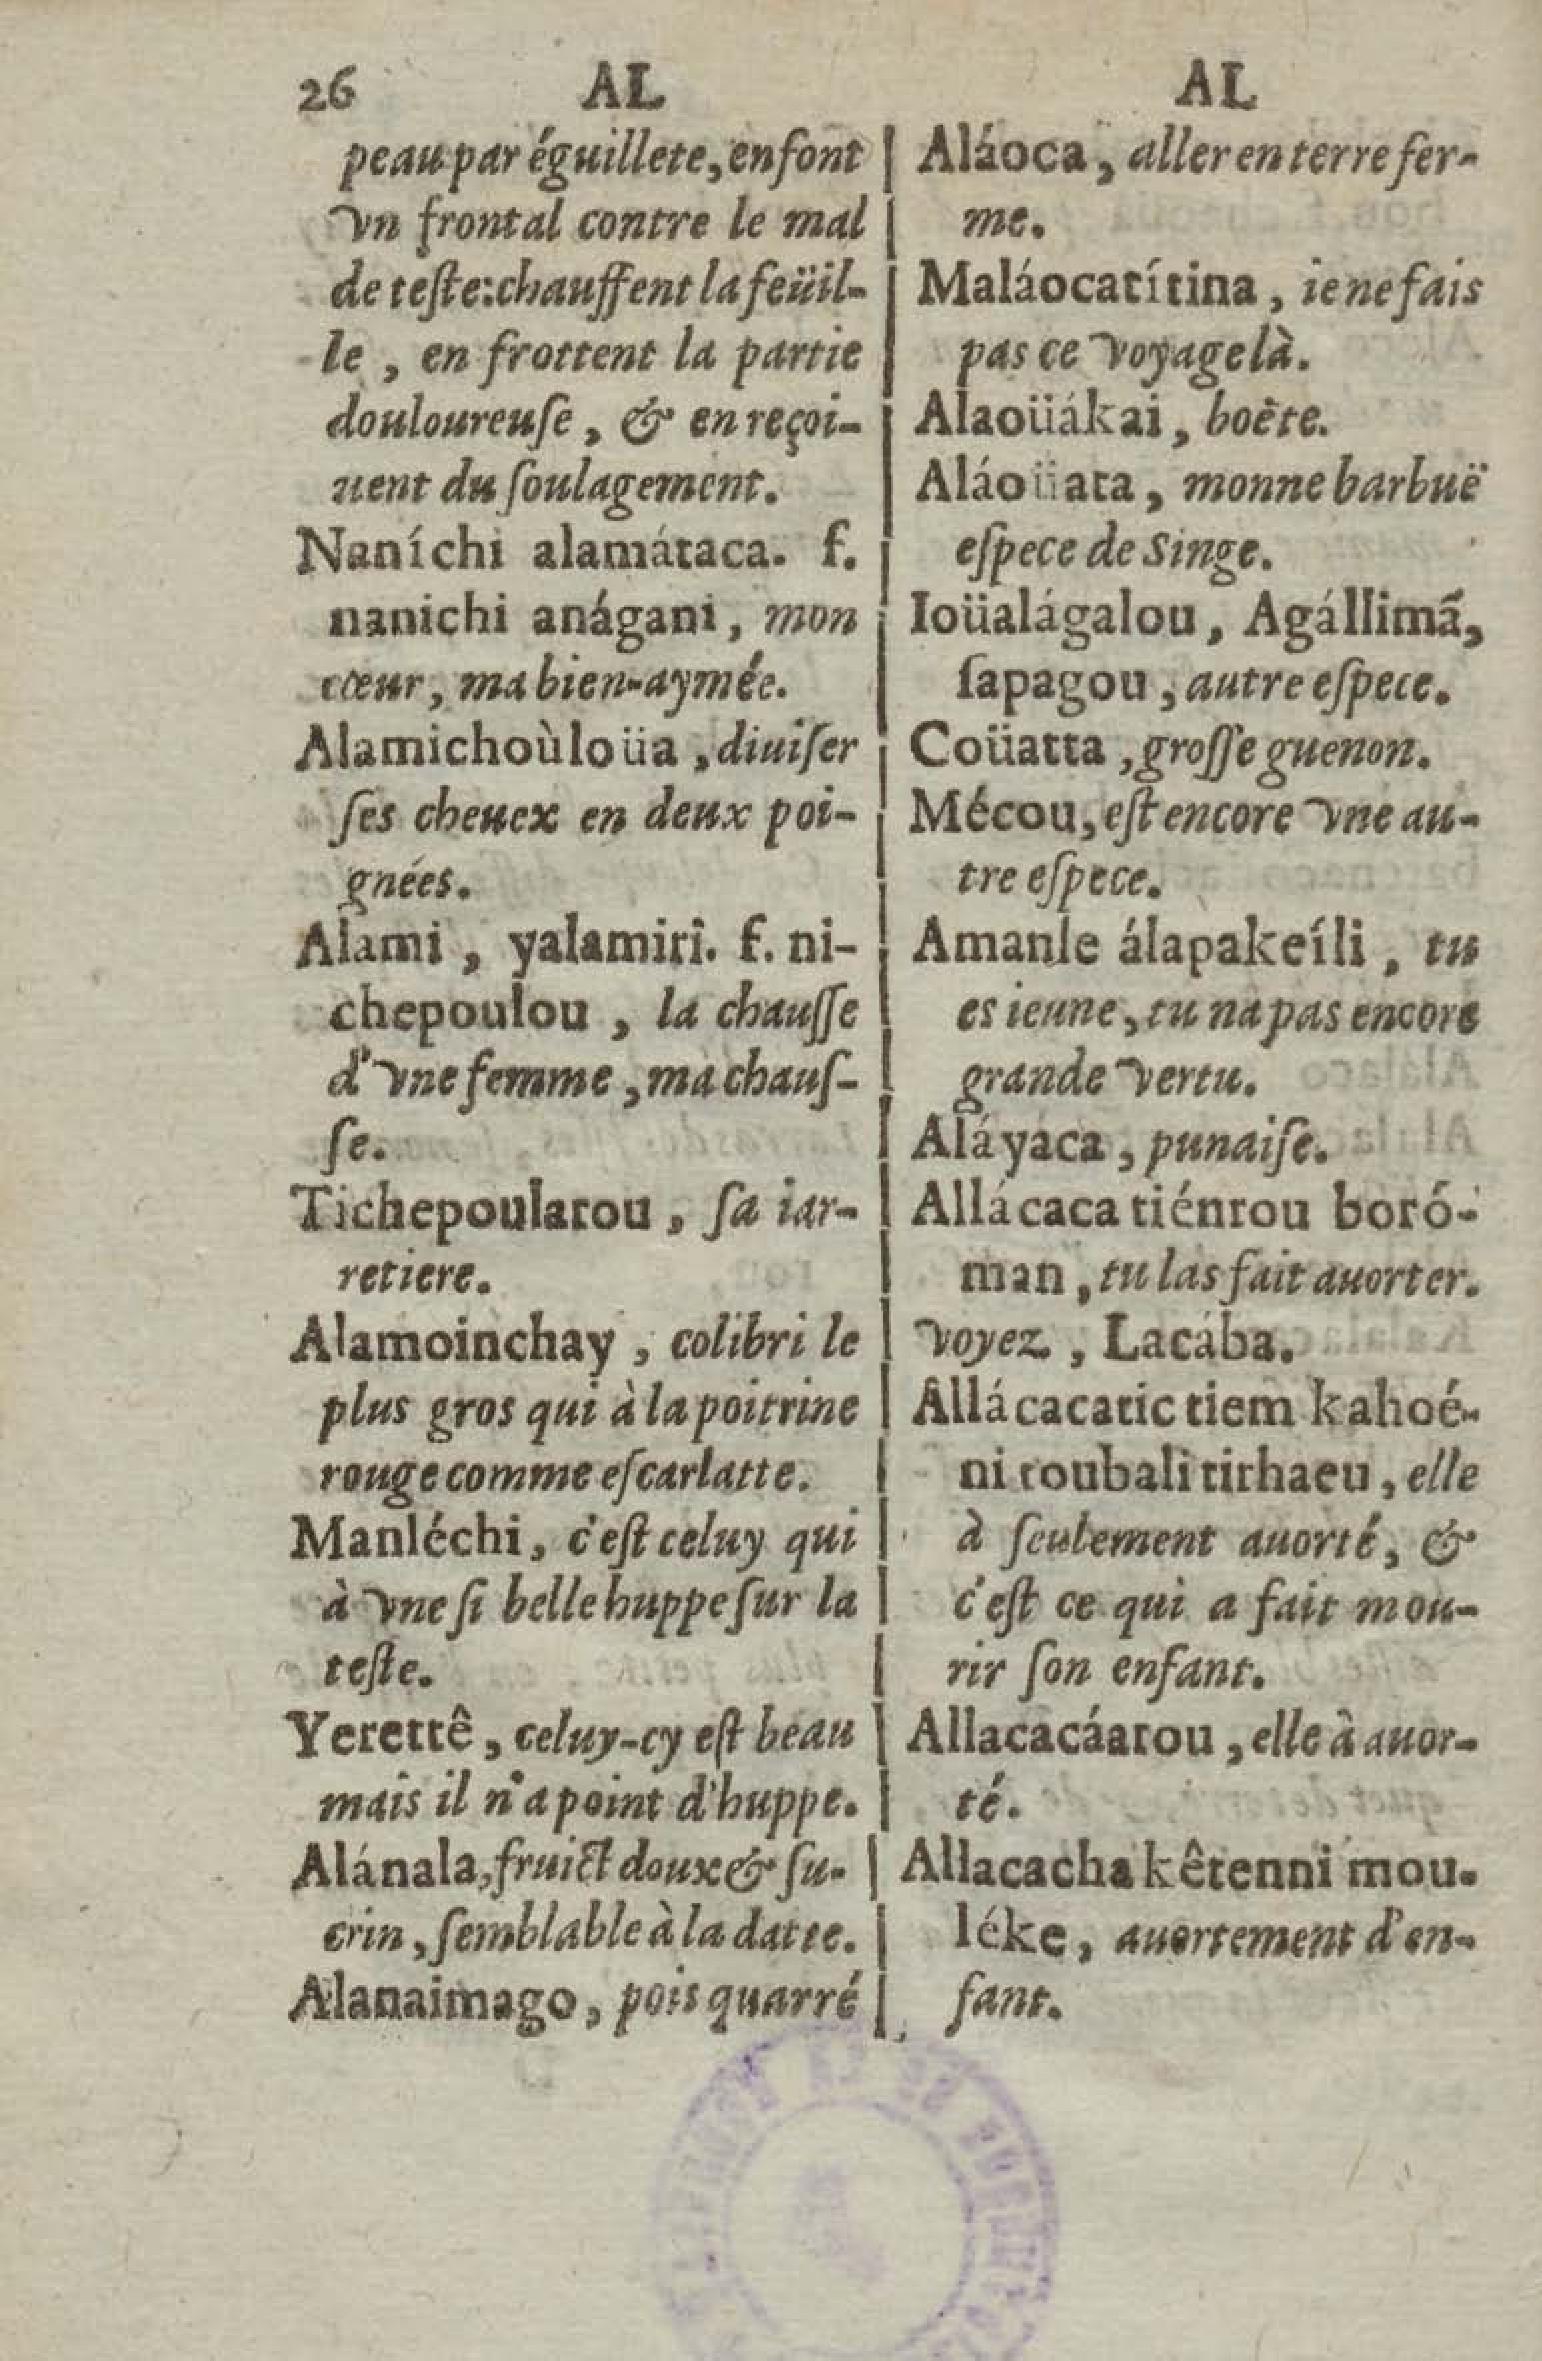 26 AL AL
peau par éguillete, en font
vn frontal contre le mal
de teſte: chauffent la feüil-
le, en frottent la partie
douloureuſe, & en reçoi-
uent du ſoulagement.
Naníchi alamátaca. f.
nanichi anágani, mon
cœur, ma bien-aymée.
Alamichoùloüa, diuiſer
ſes cheuex en deux poi-
gnées.
Alami, yalamirî. f. ni-
chepoulou, la chauſſe
d'vne femme, ma chauſ-
ſe.
Tichepoularou, ſa iar-
retiere.
Alamoinchay, colibri le
plus gros qui à la poitrine
rouge comme eſcarlatte.
Manléchi, c'eſt celuy qui
à vne ſi belle huppe ſur la
teſte.
Yerettê, celuy-cy eſt beau
mais il n'a point d'huppe.
Alánala, fruict doux & ſu-
crin, ſemblable à la datte.
Alanaimago, pois quarré
Aláoca, aller en terre fer-
me.
Maláocatítina, ie ne fais
pas ce voyage là.
Alaoüákai, boëte.
Aláoüata, monne barbuë
eſpece de Singe.
Ioüalágalou, Agállimã,
ſapagou, autre eſpece.
Coüatta, groſſe guenon.
Mécou, eſt encore vne au-
tre eſpece.
Amanle álapakeíli, tu
es ieune, tu na pas encore
grande vertu.
Aláyaca, punaiſe.
Allácaca tiénrou boró-
man, tu las fait auorter.
voyez, Lacába.
Âllácacatic tiem kahoé-
ni roubali tirhaeu, elle
à ſeulement auorté, &
c'eſt ce qui a fait mou-
rir ſon enfant.
Allacacáatou, elle à auor-
té.
Allacacha kêtenni mou-
léke, auortement d'en-
fant.